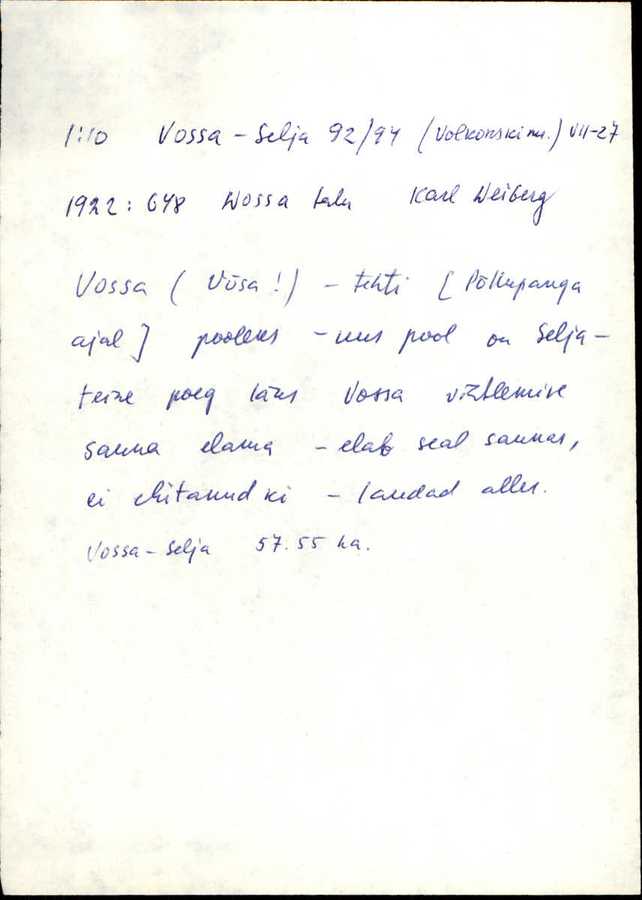 1:10 Vossa - Selja 92/94 (Volkonski m.) VII-27
1922: 648 Wossa talu Karl Weiberg
Vossa ( Võsa!) - tehti [ Põllupanga
ajal ] pooleks - uus pool on Selja -
teine poeg läks Vossa vihtlemise
sauna elama - elab seal saunas,
ei ehitanud ki - laudad alles.
Vossa - Selja 57.55 ha.